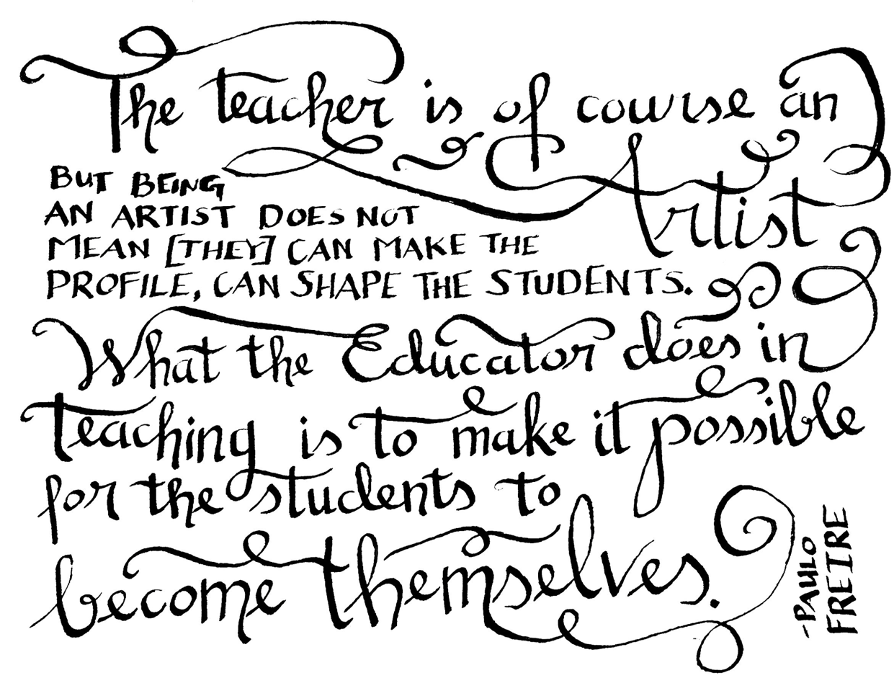 The teacher is of course an
Artist
BUT BEING
AN ARTIST DOES NOT
MEAN [THEY] CAN MAKE THE
PROFILE, CAN SHAPE THE STUDENTS.
What the Educator does in
teaching is to make it possible
for the students to
become themselves.
-PAULO
FREIRE